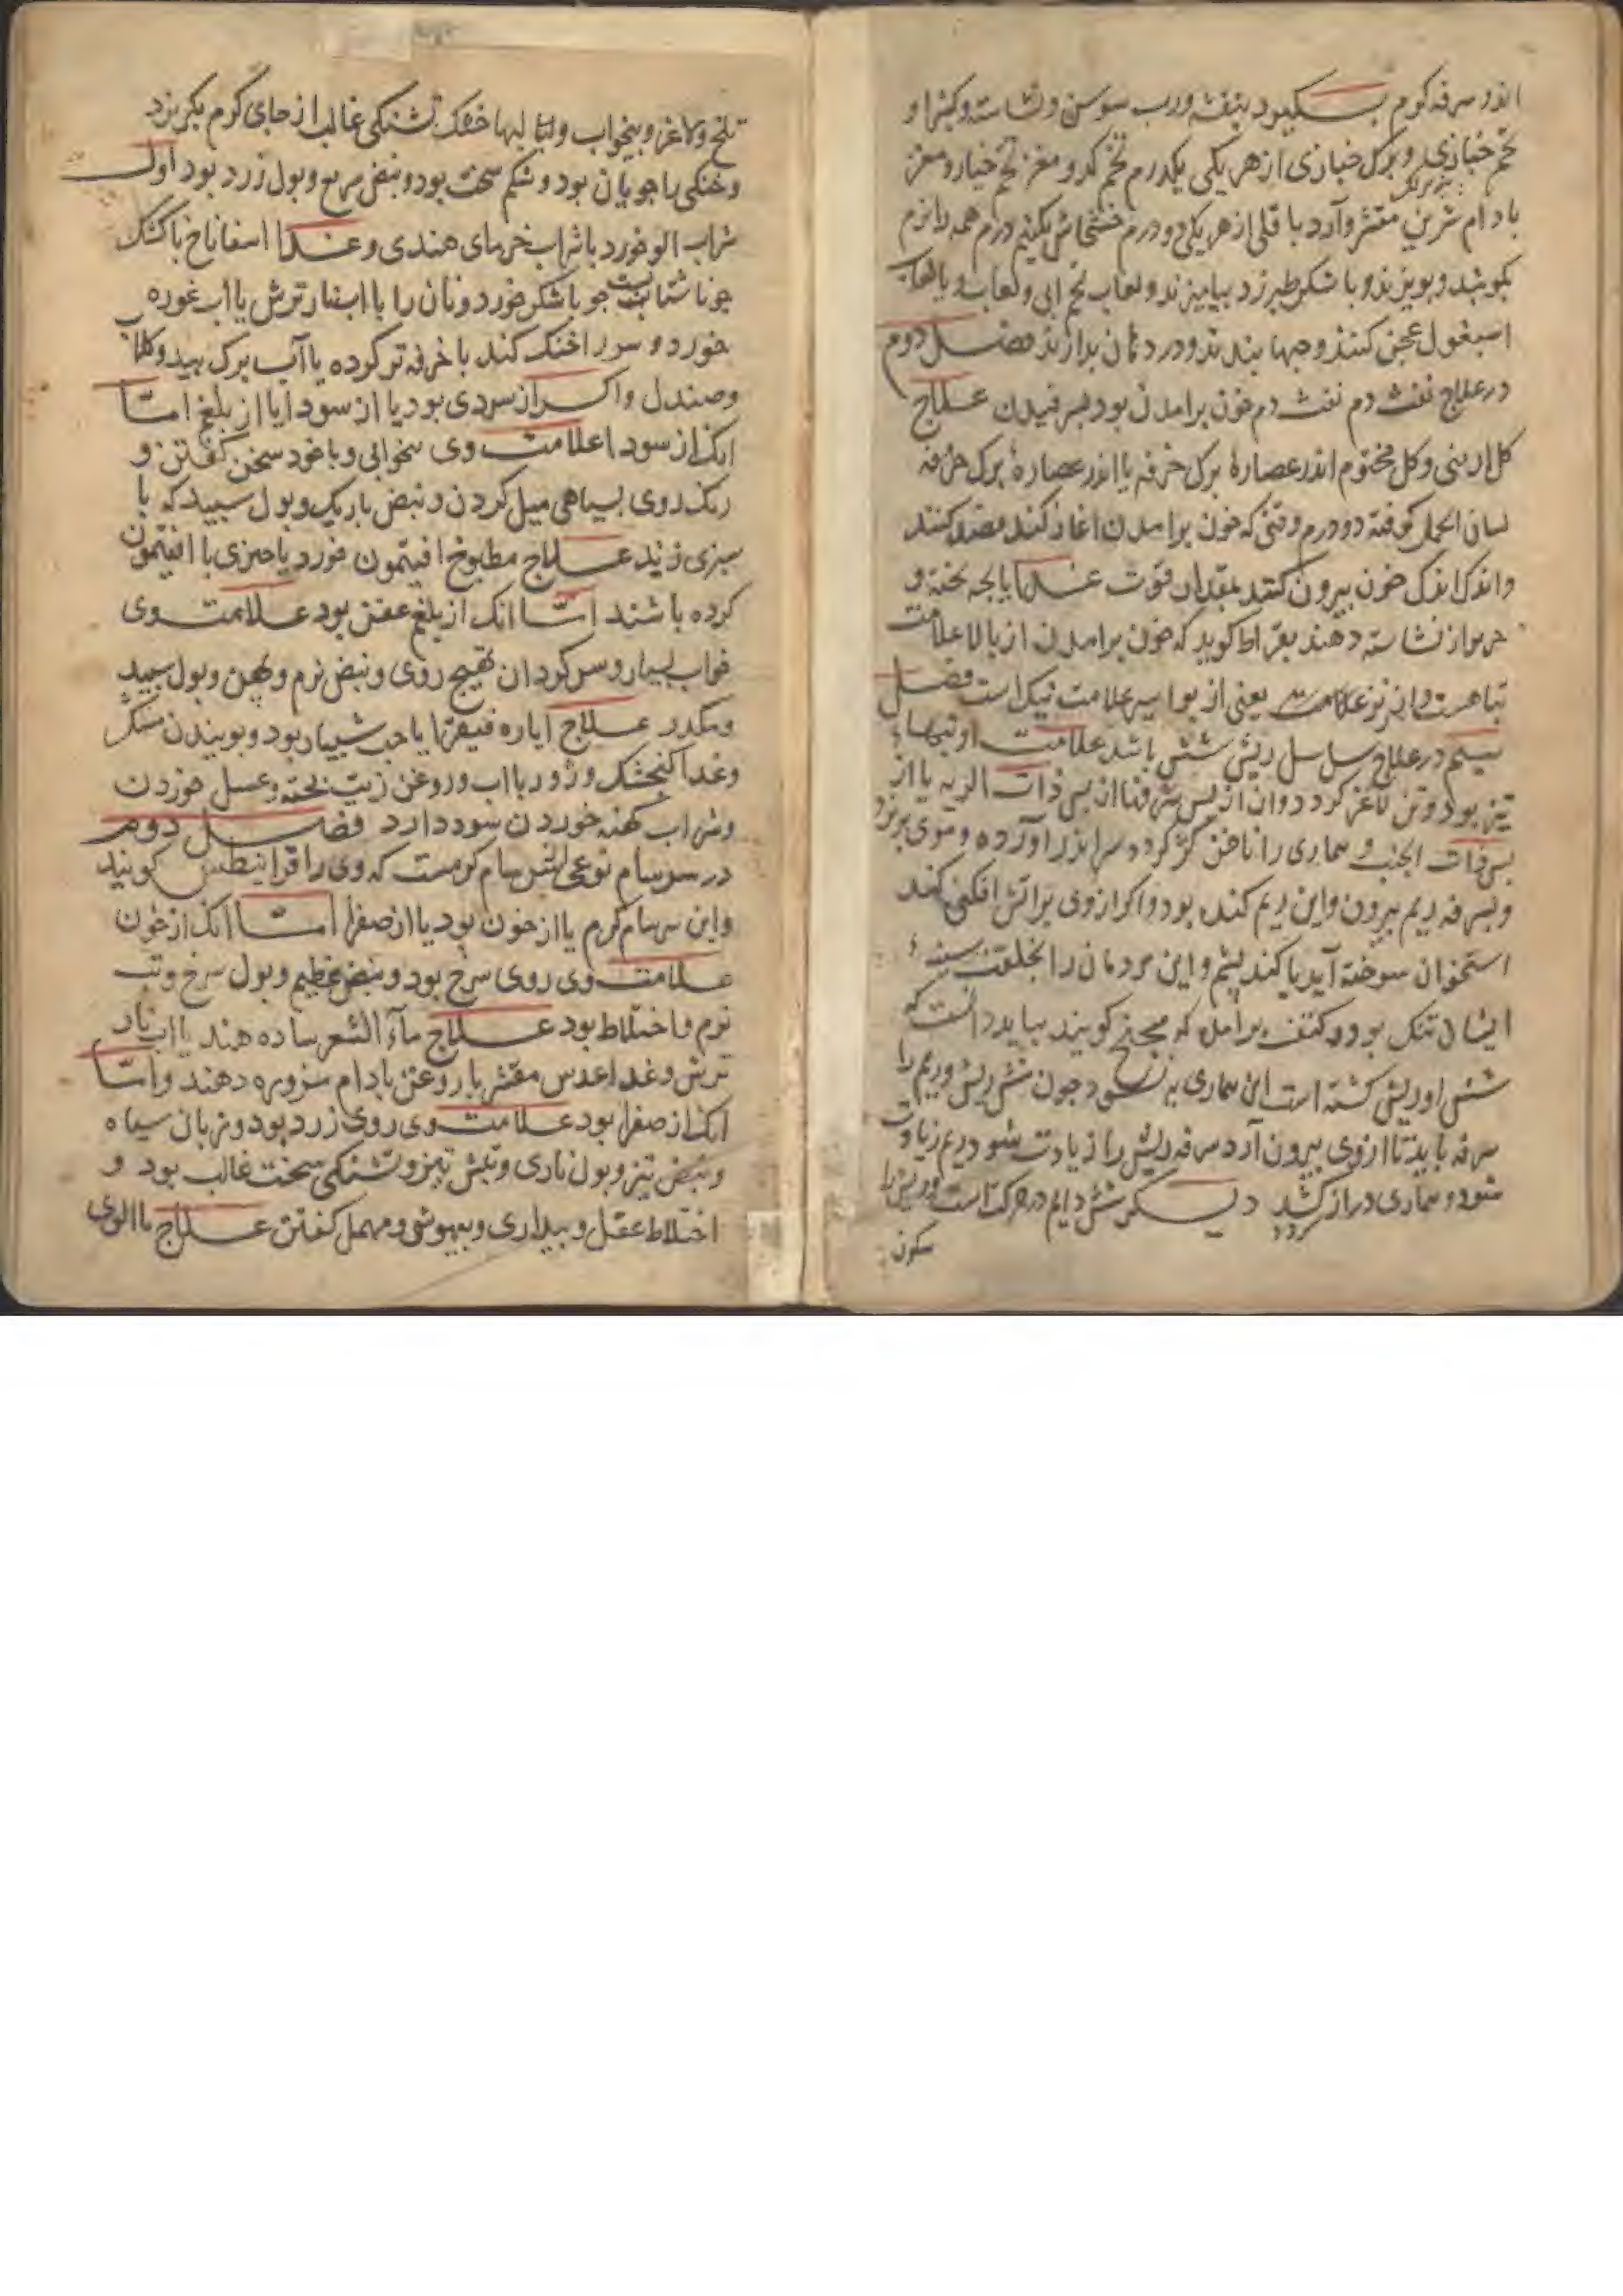 اندر سرفه کرم بسکیرد بنفشه ورب سوسن ونشاسته وکثیرا و
تخم خبازی وبرک خبازی ازهریکی یکدرم تخم کدو ومغز تخم خیار ومغز
بادام شرین مقشر وآرد باقلی ازهریکی دو درم خشخاش یکنیم درم همه را نرم
بکوبند وبویزند وبا شکر طبرزد بیامیزند ولعاب تخم ابی ولعاب ویا لعاب
اسبغول عجن کنند وحبها بندند ودر دهان بدارند فصل دوم
درعلاج نفث دم نفث دم خون برامدن بود بسرفیدن علاج
کل ارمنی وکل مختوم اندر عصارهٔ برک خرفه یا اندر عصارهٔ برک خرفه
لسان الحمل کوفته دو درم وقتی که خون برامدن اغاز کند فصد کنند
واندک اندک خون بیرون کنند بمقدار قوت غدا پایجه بخته و
حریر از نشاسته دهند بقراط کوید که خون برامدن از بالا علامت
تباهست واز فرو علامت یعنی از بواسیر علامت نیک است فصل
سیم در علاج سل سل ریش شش باشد علامت او تبهاء
تیز بود وتن لاغر کردد وان از پس سرفها از پس ذات الریه یا از
پس ذات الجنب و بیماری را ناخن کژ کردد سر اندر آورده وموی بریزد
وبسرفه ریم بیرون واین ریم کنده بود واکر ازوی برآتش افکنی کند
استخوان سوخته آید یا کند پشم واین مردمان را بخلقت سینهٔ
ایشان تنک بود وکتف برامده که مجنح کویند بباید دانست که
شش او ریش کشته است این بیماری به نشود جون شش ریش وریم را
سرفه باید تا ازوی بیرون آرد سرفه ریش را زیادت شود ریم زیاوت
شود وبیماری دراز کردد دیکر شش دایم در حرکت است وریش را
سکون
تلخ ولاغر وبیخواب ولبها خشک تشنکی غالب از جای کرم بکریزد
وخنکی را جویان بود وشکم سخت بود ونبض سریع وبول زرد بود اول
شراب الو خورد با شراب خرمای هندی وغدا اسفاناخ با کشک
جو ناشتا بست جو با شکر خورد ونان را با اب نار ترش یا اب غوره
خورد و سر را خنک کند با خرفه تر کرده یا آب برک بید وکلاب
وصندل واکر از سردی بود یا از سودا یا از بلغم امتا
انک از سودا علامت وی بیخوابی وبا خود سخن کفتن و
رنک روی بسیاهی میل کردن ونبض باریک وبول سبید که با
سبزی زند علاج مطبوخ افیتمون خورد یا چیزی با افیتمون
کرده باشند امتا انک از بلغم عفن بود علامت وی
خواب بسیار وسر کردان تهیج روی ونبض نرم وپهن وبول سبید
ومکدر علاج ایاره فیقرا یا حب شبیار بود وبوییدن مشک
وغدا کنجشک وزور با اب وروغن زیت بخته وعسل خوردن
وشراب کهنه خوردن سود دارد فصل دوم
در سرسام نوعی از سرسام کرمست که وی را قرانیطس کویند
واین سرسام کرم یا از خون بود یا از صفرا امتا انک از خون
علامت وی روی سرخ بود ونبض عظیم وبول سرخ وتب
نرم واختلاط بود علاج ماء الشعر ساده دهند یا اب نار
ترش وغدا عدس مقشر با روغن بادام مزوره دهند وامتا
انک از صفرا بود علامت وی روی زرد بود وزبان سیاه
ونبض تیز وبول ناری وتبش تیز وتشنکی سخت غالب بود و
اختلاط عقل وبیداری وبیهوشی ومهمل کفتن علاج ماالوی